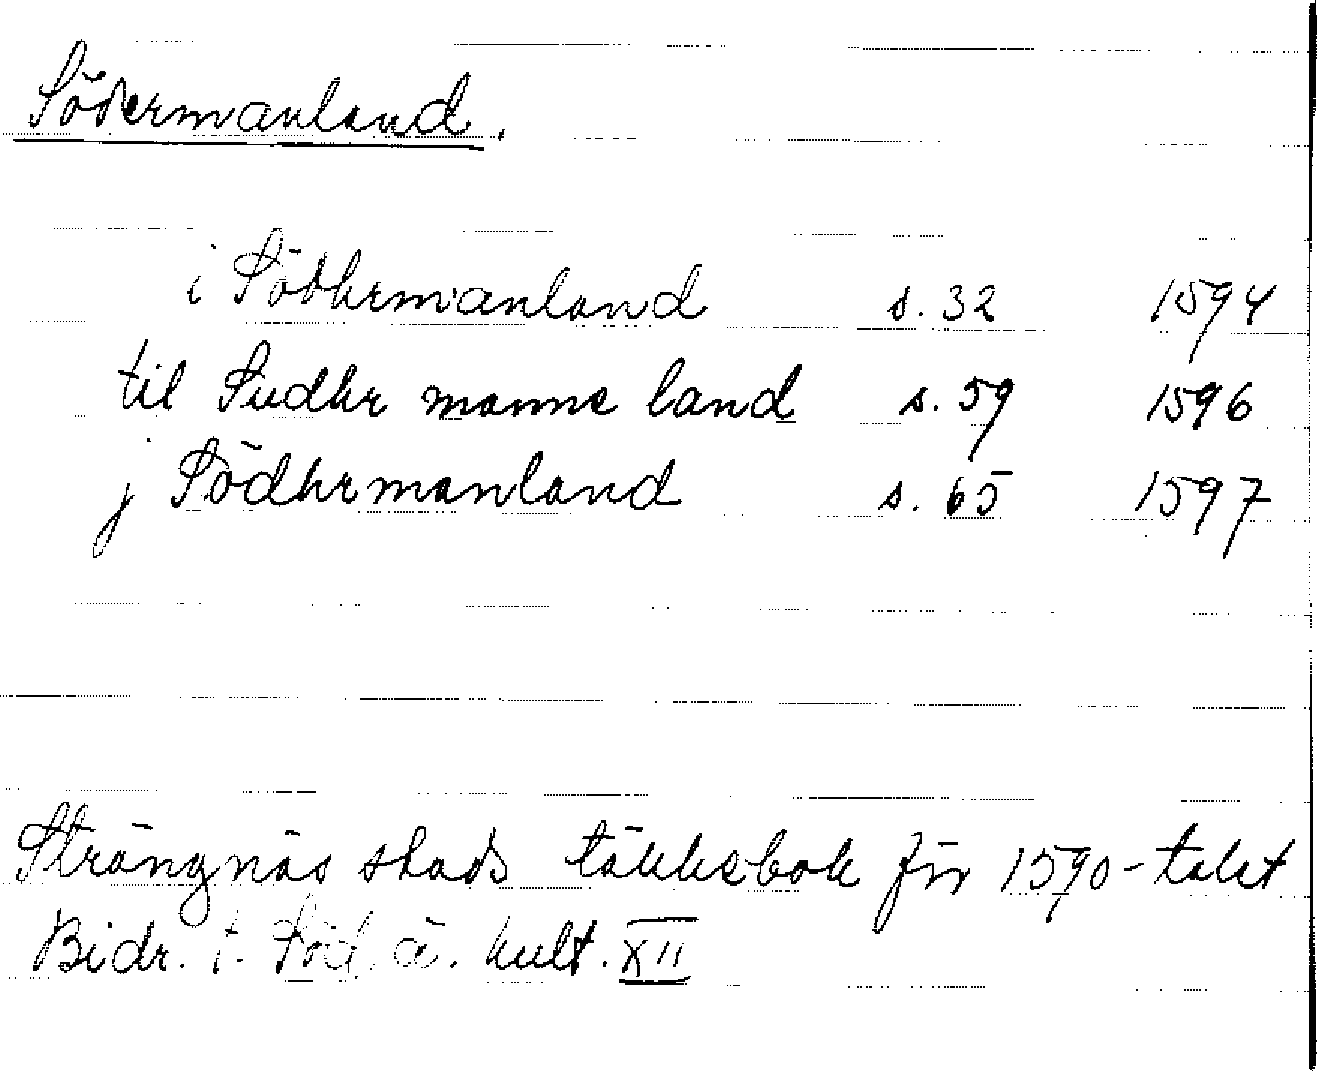 Södermanland.
i Södhermanland s. 32 1594
til Sudher manne land s. 59 1596
j Södhermanland s. 65 1597
Strängnäs stads tänkebok för 1590-talet
Bidr. t. Söd. ä. kult. XII